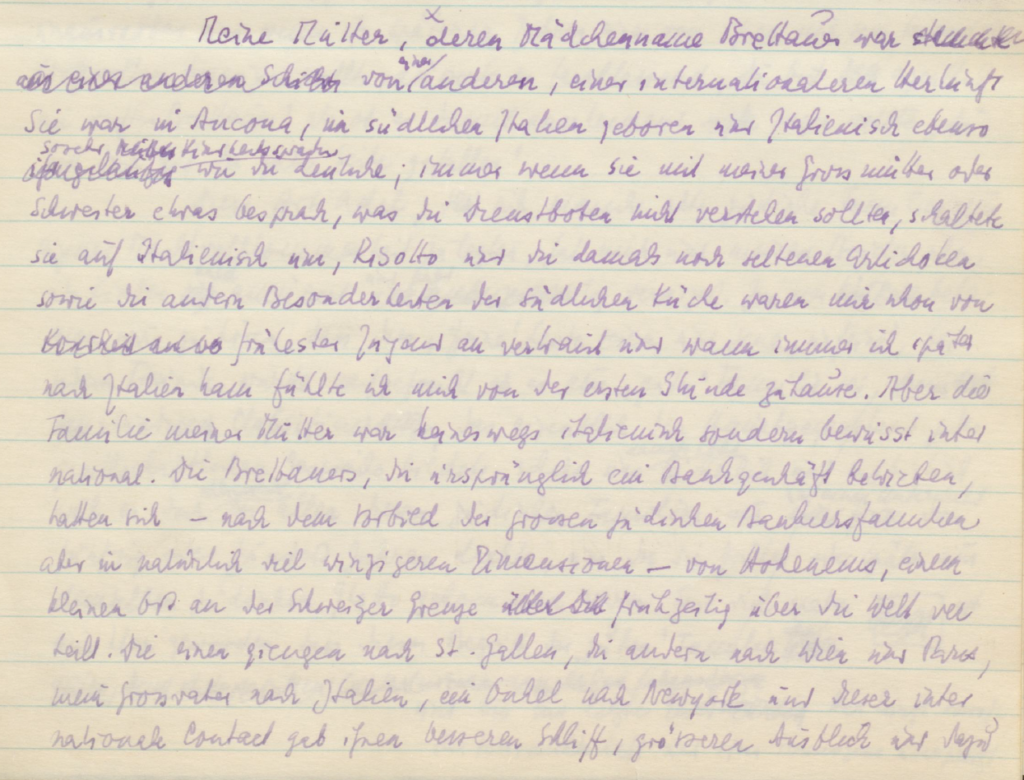 Meine Mutter, deren Mädchenname Brettauer war stammte
aus einer anderen Schicht von einer anderen, einer internationaleren Herkunft
Sie war in Ancona, im südlichen Italien geboren und Italienisch ebenso
ihre Kindheitssprache
wie die deutsche; immer wenn sie mit meiner Grossmutter oder
Schwester etwas besprach, was die Dienstboten nicht verstehen sollten, schaltete
sie auf Italienisch um, Risotto und die damals noch seltenen Artichoken
sowie die andern Besonderheiten der südlichen Küche waren mir schon von
frühester Jugend an vertraut und wann immer ich später
nach Italien kam fühlte ich mich von der ersten Stunde zuhause. Aber die
Familie meiner Mutter war keineswegs italienisch sondern bewusst inter
national. Die Brettauers, die ursprünglich ein Bankgeschäft betrieben,
hatten sich – nach dem Vorbild der grossen jüdischen Bankiersfamilien
aber in natürlich viel winzigeren Dimensionen – von Hohenems, einem
kleinen Ort an der Schweizer Grenze frühzeitig über die Welt ver
teilt. Die einen giengen nach St. Gallen, die andern nach Wien und Paris,
mein Grossvater nach Italien, ein Onkel nach Newyork und dieser inter
nationale Contact gab ihnen besseren Schliff, grösseren Ausblick und dazu